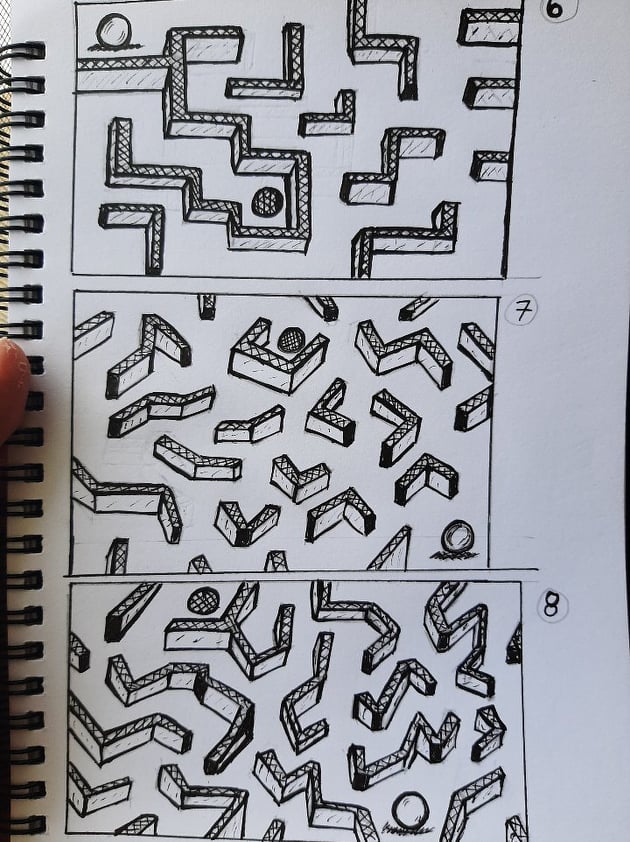 6
7
8